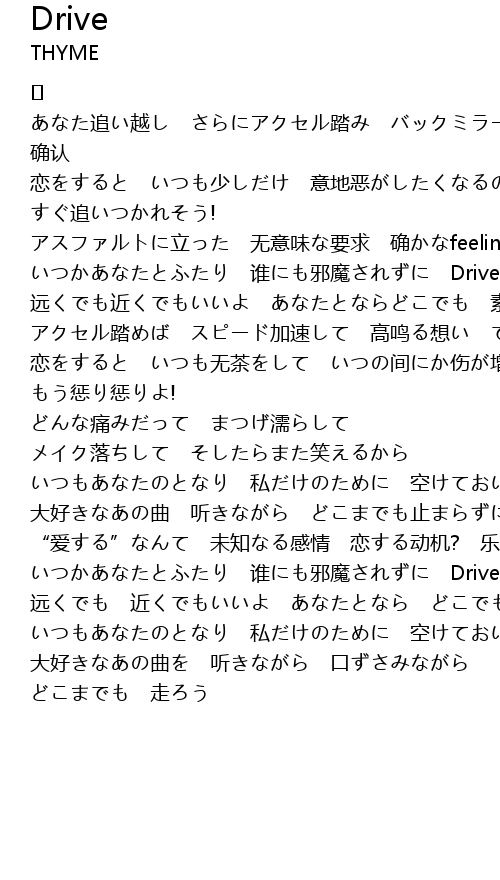 Drive
THYME
あなた追い越し　さらにアクセル踏み　バックミラー
确认
恋をすると　いつも少しだけ　意地恶がしたくなるの
すぐ追いつかれそう!
アスファルトに立った　无意味な要求　确かなfeelin
いつかあなたとふたり　谁にも邪魔されずに　Drive
远くでも近くでもいいよ　あなたとならどこでも　素
アクセル踏めば　スピード加速して　高鸣る想い　て
恋をすると　いつも无茶をして　いつの间にか伤が增
もう惩り惩りよ!
どんな痛みだって　まつげ濡らして
メイク落ちして　そしたらまた笑えるから
いつもあなたのとなり　私だけのために　空けておい
大好きなあの曲　听きながら　どこまでも止まらずに
“爱する”なんて　未知なる感情　恋する动机?　乐
いつかあなたとふたり　谁にも邪魔されずに　Drive
远くでも　近くでもいいよ　あなたとなら　どこでも
いつもあなたのとなり　私だけのために　空けておい
大好きなあの曲を　听きながら　口ずさみながら
どこまでも　走ろう